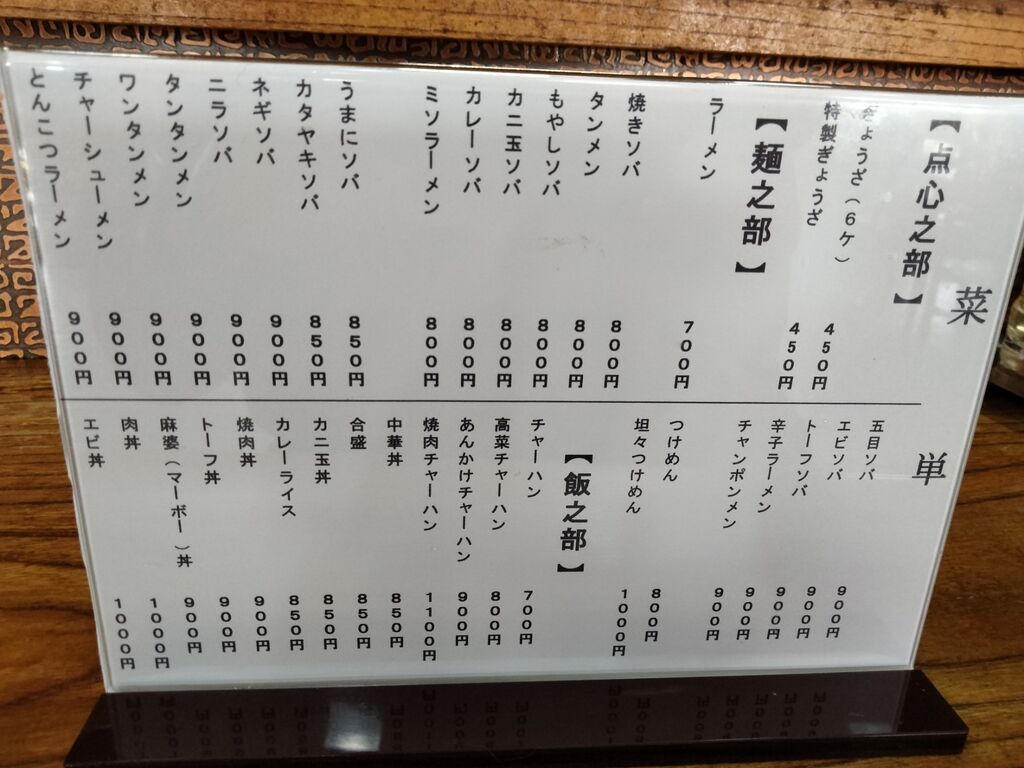 菜単
【点心之部】
ぎょうざ（６ケ） ４５０円
特製ぎょうざ ４５０円
【麺之部】
ラーメン ７００円
焼きソバ ８００円
タンメン ８００円
もやしソバ ８００円
カニ玉ソバ ８００円
カレーソバ ８００円
ミソラーメン ８００円
うまにソバ ８５０円
カタヤキソバ ８５０円
ネギソバ ９００円
ニラソバ ９００円
タンタンメン ９００円
ワンタンメン ９００円
チャーシューメン ９００円
とんこつラーメン ９００円
五目ソバ ９００円
エビソバ ９００円
トーフソバ ９００円
辛子ラーメン ９００円
チャンポンメン ９００円
つけめん ８００円
坦々つけめん １０００円
【飯之部】
チャーハン ７００円
高菜チャーハン ８００円
あんかけチャーハン ９００円
焼肉チャーハン １１００円
中華丼 ８５０円
合盛 ８５０円
カニ玉丼 ８５０円
カレーライス ８５０円
焼肉丼 ９００円
トーフ丼 ９００円
麻婆（マーボー）丼 ９００円
肉丼 １０００円
エビ丼 １０００円